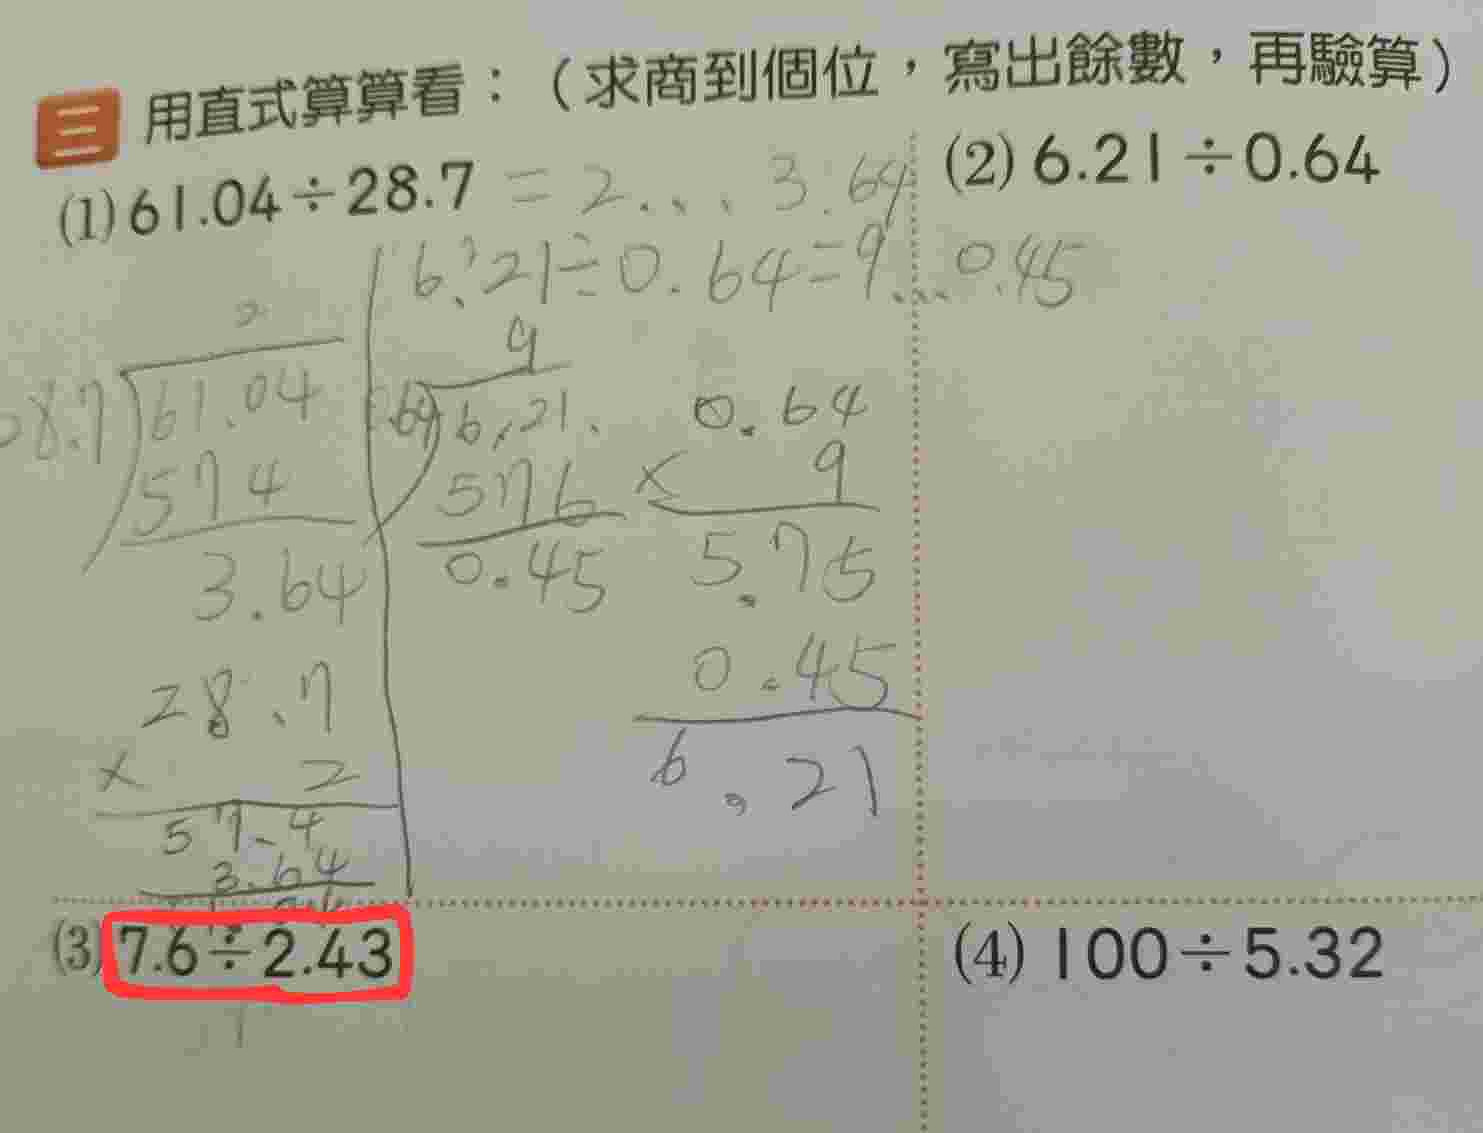 三 用直式算算看：（求商到個位，寫出餘數，再驗算）
(1) 61.04÷28.7 = 2... 3.64
(2) 6.21÷0.64
6.21÷0.64=9...0.45
2
8.7 61.04
574
3.64
28.7
× 2
57.4
3.64
9
.64 6.21.
576
0.45
0.64
× 9
5.75
0.45
6.21
(3) 7.6÷2.43
(4) 100÷5.32